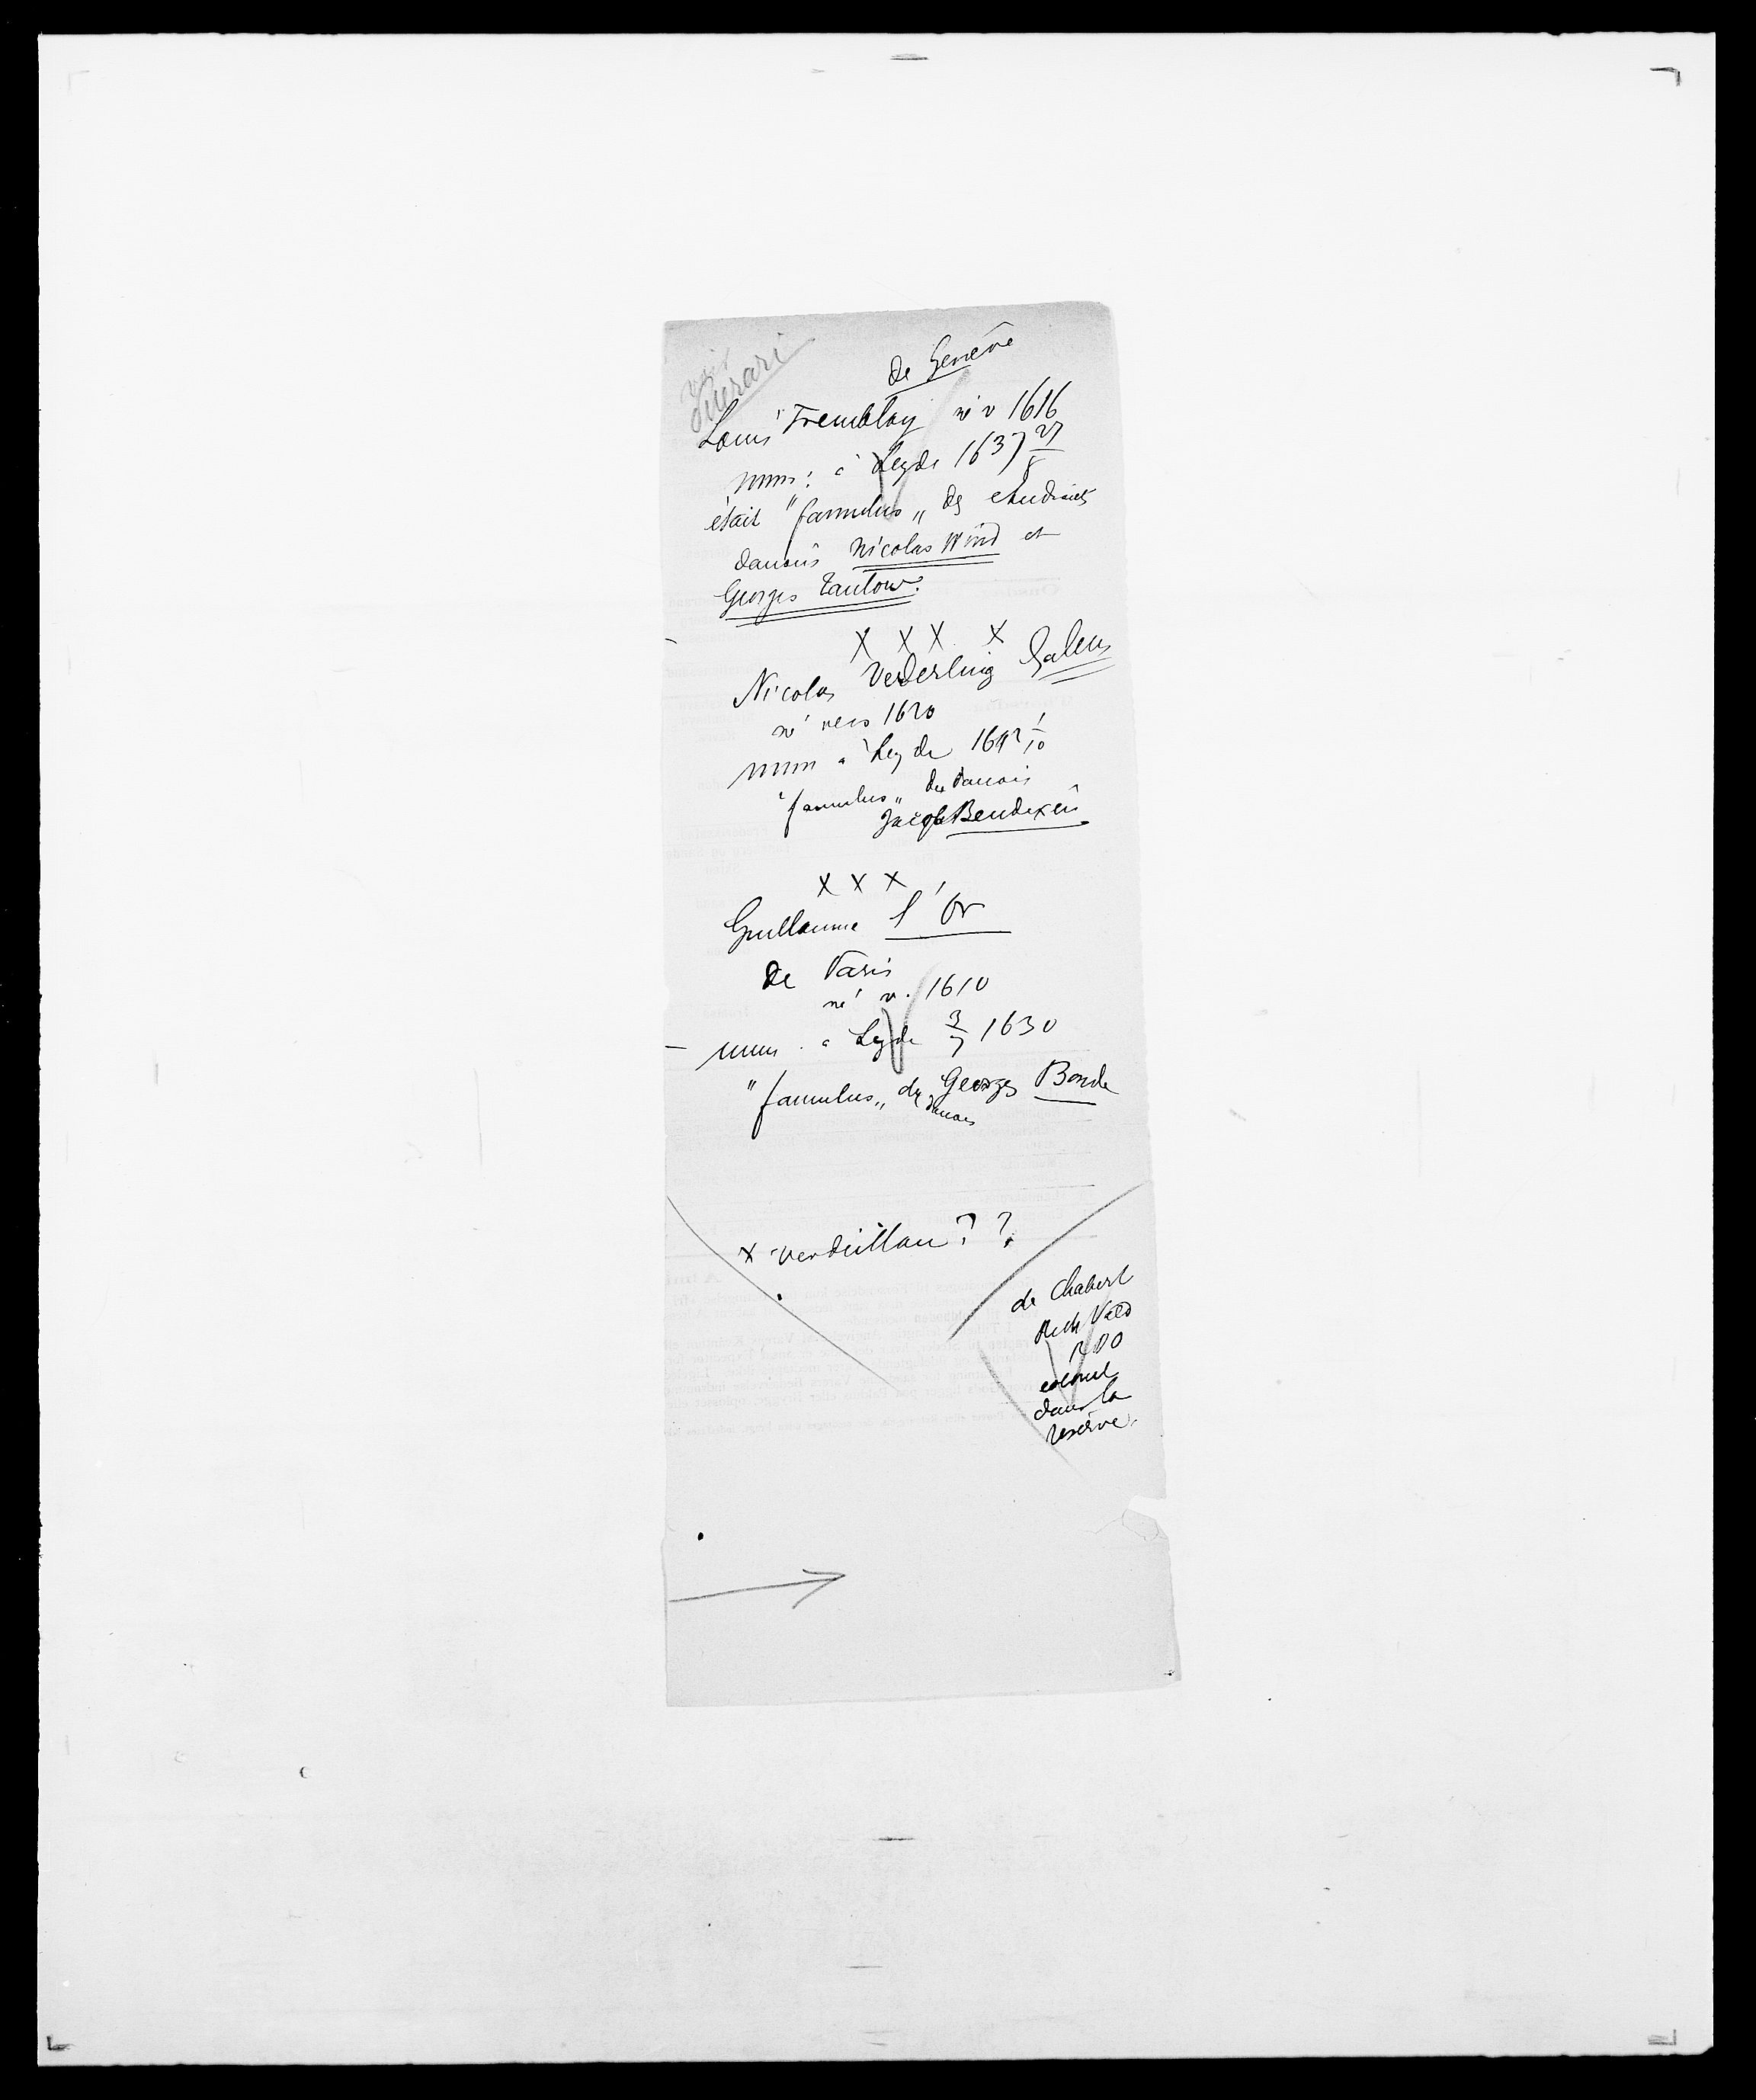 de Genève
Louis Tremblay né v 1616
imm: à Leyde 1637 27/8
était "famulus" des étudiants
danois Nicolas Wind et
Georges Tautow.
X X X X
Nicolas Verderling Galeus
né vers 1620
imm à Leyde 1642 1/10
"famulus" du danois
Jacob Bendixen
X X X
Guillaume l'Or
de Paris
né v. 1610
imm. à Leyde 3/7 1630
"famulus" du Georges Bonde
danois
X Verduillau? ?
de Chabert
colonel
dans la
réserve.